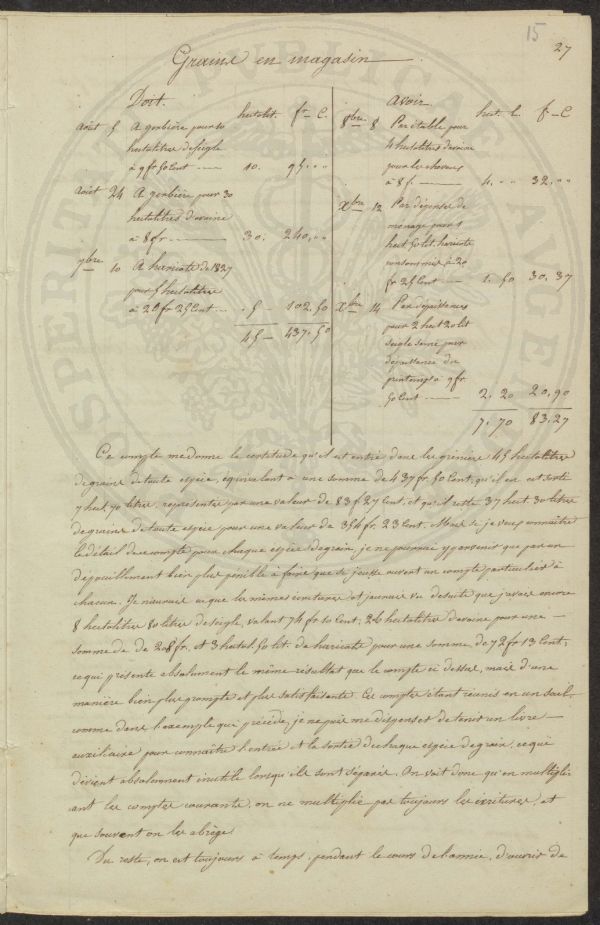 15
27
Grains en magasin
Doit. hectolit. fr. C.
Août 5 A gerbière pour 10
hectolitres de seigle
à 9 fr 50 Cent 10. 95. "
Août 24 A gerbière pour 30
hectolitres d'avoine
à 8 fr 30. 240. "
7bre 10 A haricots de 1827
pour 5 hectolitres
à 20 fr 25 Cent 5 - 102.50
45 - 437.50
avoir hect. l. f - C
8bre 8 Par étable pour
4 hectolitres d'avoine
pour les chevaux
à 8 f. 4. " 32. "
Xbre 12 Par dépense de
ménage pour 1
hect 50 lit haricots
consommés à 20
fr 25 Cent 1. 50 30. 37
Xbre 14 Par dépaissances
pour 2 hect 20 lit
seigle semé pour
dépaissance du
printemps à 9 fr
50 Cent 2. 20 20. 90
7. 70 83. 27
Ce compte me donne la certitude qu'il est entré dans les greniers 45 hectolitres
de grains de toute espèce, équivalant à une somme de 437 fr. 50 Cent, qu'il en est sorti
7 hect. 70 litres, représentés par une valeur de 83 f 27 Cent, et qu'il reste 37 hect 30 litres
de grains de toute espèce pour une valeur de 354 fr. 23 Cent. Mais si je veux connaître
le détail de ce compte pour chaque espèce de grain, je ne pourrai y parvenir que par un
dépouillement bien plus pénible à faire que si j'eusse ouvert un compte particulier à
chacun. Je n'aurais eu que les mêmes écritures et j'aurais vu de suite que j'avais encore
8 hectolitres 80 litres de seigle, valant 74 fr 10 Cent, 26 hectolitres d'avoine pour une
somme de de 208 fr. et 3 hectol. 50 lit. de haricots pour une somme de 72 fr 13 Cent;
ce qui présente absolument le même résultat que le compte ci dessus, mais d'une
manière bien plus prompte et plus satisfaisante. Ces comptes étant réunis en un seul,
comme dans l'exemple qui précède, je ne puis me dispenser de tenir un livre
auxiliaire pour connaître l'entrée et la sortie de chaque espèce de grain, ce qui
devient absolument inutile lorsqu'ils sont séparés. On voit donc qu'en multipli-
ant les comptes courants, on ne multiplie pas toujours les écritures, et
que souvent on les abrège.
Du reste, on est toujours à temps, pendant le cours de l'année, d'ouvrir de